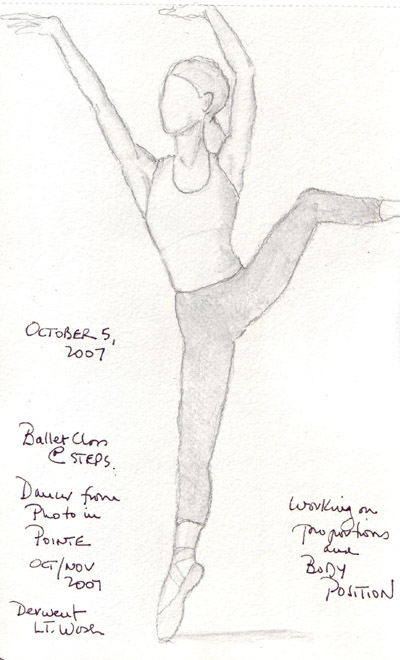 OCTOBER 5,
2007
Ballet Class
@ STEPS.
Dancer from
Photo in
POINTE
OCT/NOV
2007
Derwent
LT. Wash
Working on
proportions
and
BODY
POSITION